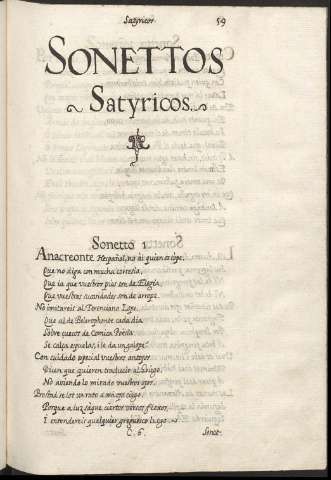 Satyricos. 59
SONETTOS
Satyricos.
Sonetto 1.
Anacreonte Hespañol, no ai quien os tope,
Que no diga con mucha cortesia,
Que ia que vuestros pies son de Elegia,
Que vuestras suavidades son de arrope.
No imitareis al Terenciano Lope,
Que al de Belerophonte cada dia
Sobre zuecos de Comica Poesia
Se calça espuelas, i le da un galope?
Con cuidado especial vuestros antojos
Dicen, que quieren traducir al Griego,
No aviendo lo mirado vuestros ojos.
Prestad se los un rato a mi ojo ciego,
Porque a luz saque ciertos versos flojos,
I entendereis qualquier greguesco luego.
C. 6. Sonet-